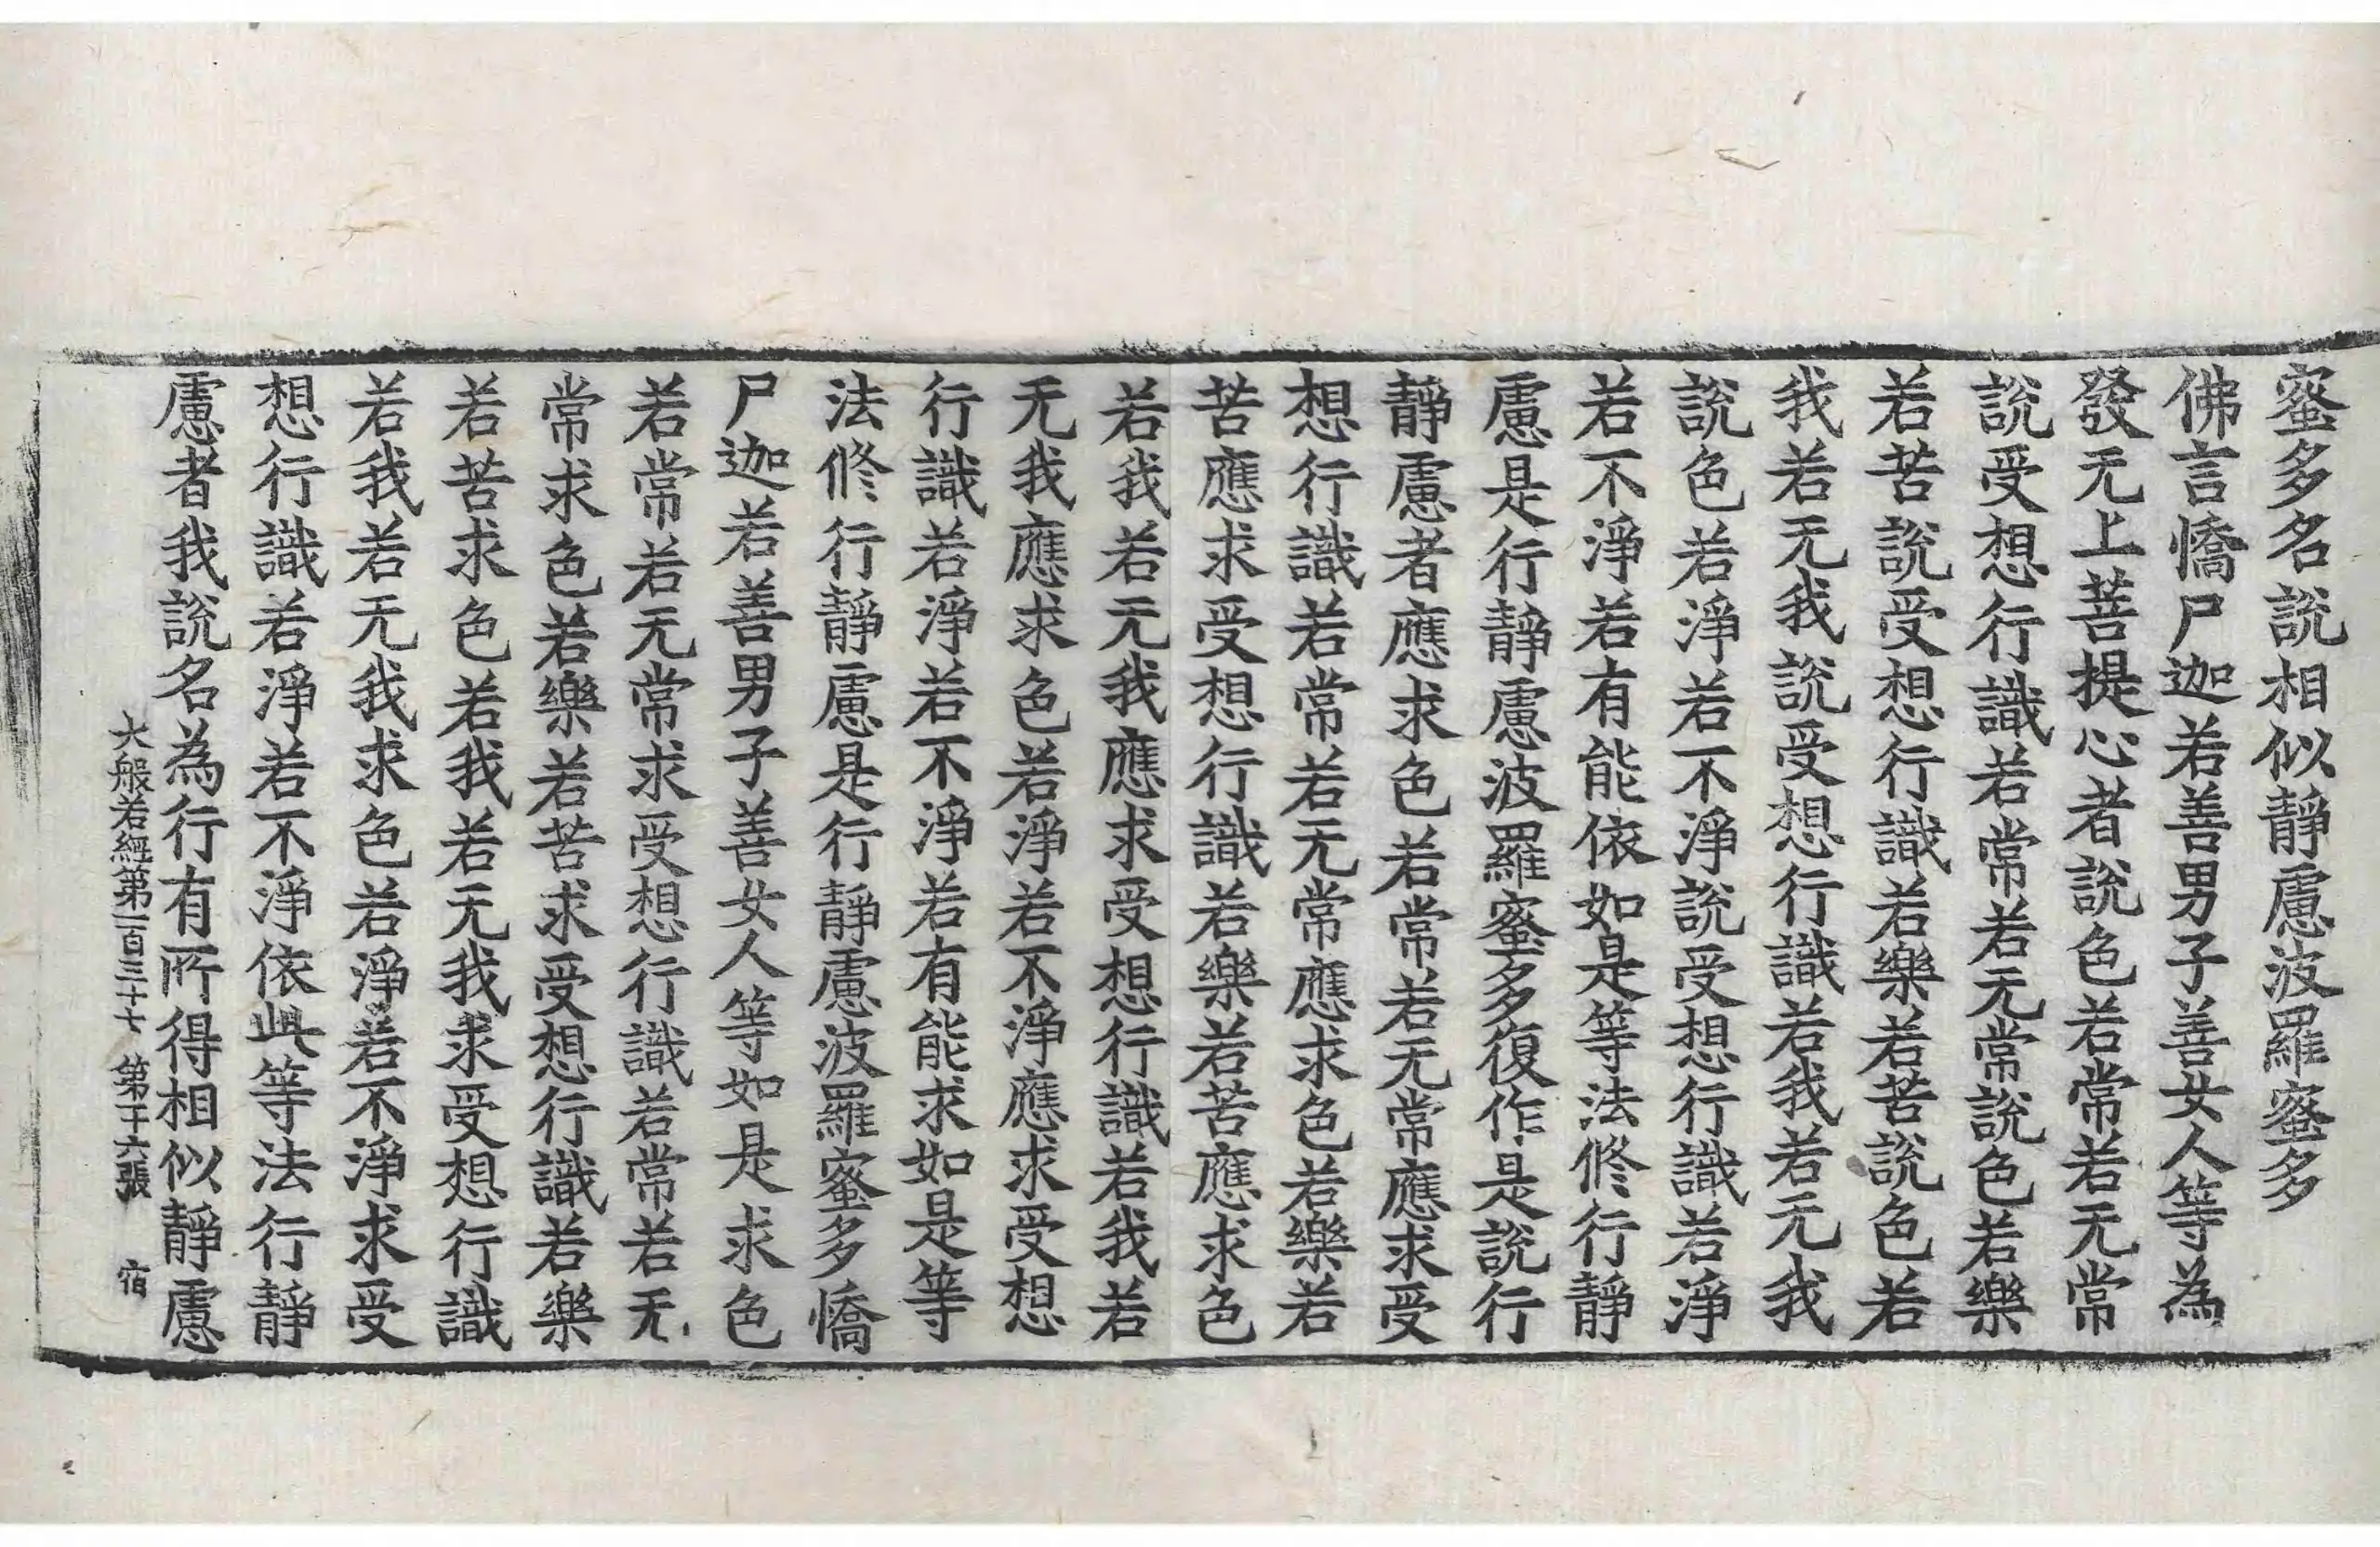 蜜多名說相似靜慮波羅蜜多
佛言憍尸迦若善男子善女人等為
發无上菩提心者說色若常若无常
說受想行識若常若无常說色若樂
若苦說受想行識若樂若苦說色若
我若无我說受想行識若我若无我
說色若淨若不淨說受想行識若淨
若不淨若有能依如是等法修行靜
慮是行靜慮波羅蜜多復作是說行
靜慮者應求色若常若无常應求受
想行識若常若无常應求色若樂若
苦應求受想行識若樂若苦應求色
若我若无我應求受想行識若我若
无我應求色若淨若不淨應求受想
行識若淨若不淨若有能求如是等
法修行靜慮是行靜慮波羅蜜多憍
尸迦若善男子善女人等如是求色
若常若无常求受想行識若常若无
常求色若樂若苦求受想行識若樂
若苦求色若我若无我求受想行識
若我若无我求色若淨若不淨求受
想行識若淨若不淨依此等法行靜
慮者我說名為行有所得相似靜慮
大般若經第一百三十七 第十六張 宿